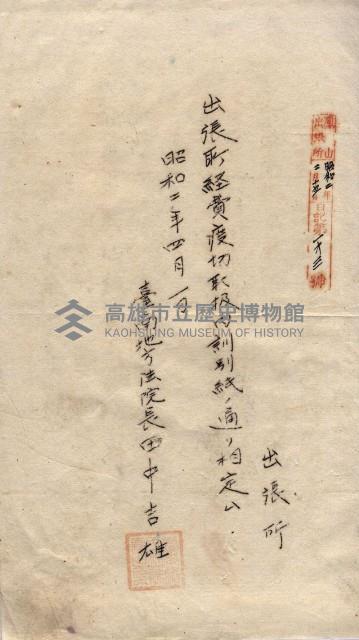 鳳山出張所
昭和二年
二月十五日
日記第一六三號
出張所
出張所経費渡切取扱内訓別紙ノ通リ相定ム
昭和二年四月一日
臺南地方法院長田中吉雄
高雄市立歷史博物館
KAOHSIUNG MUSEUM OF HISTORY